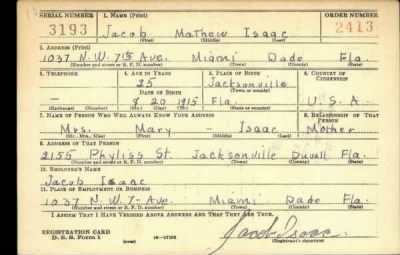 SERIAL NUMBER 1. NAME (Print) ORDER NUMBER
3193 Jacob Mathew Isaac 2413
(First) (Middle) (Last)
2. ADDRESS (Print)
1037 N.W. 7th Ave. Miami Dade Fla.
(Number and street or R. F. D. number) (Town) (County) (State)
3. TELEPHONE 4. AGE IN YEARS 5. PLACE OF BIRTH 6. COUNTRY OF CITIZENSHIP
25 Jacksonville
DATE OF BIRTH (Town or county)
8 20 1915 Fla. U.S.A.
(Exchange) (Number) (Mo.) (Day) (Yr.) (State or country)
7. NAME OF PERSON WHO WILL ALWAYS KNOW YOUR ADDRESS 8. RELATIONSHIP OF THAT PERSON
Mrs. Mary - Isaac Mother
(Mr., Mrs., Miss) (First) (Middle) (Last)
9. ADDRESS OF THAT PERSON
2155 Phyliss St. Jacksonville Duvall Fla.
(Number and street or R. F. D. number) (Town) (County) (State)
10. EMPLOYER'S NAME
Jacob Isaac
11. PLACE OF EMPLOYMENT OR BUSINESS
1037 N.W. 7- Ave. Miami Dade Fla.
(Number and street or R. F. D. number) (Town) (County) (State)
I AFFIRM THAT I HAVE VERIFIED ABOVE ANSWERS AND THAT THEY ARE TRUE.
REGISTRATION CARD
D. S. S. Form 1 (over) Jacob Isaac
(Registrant's signature)